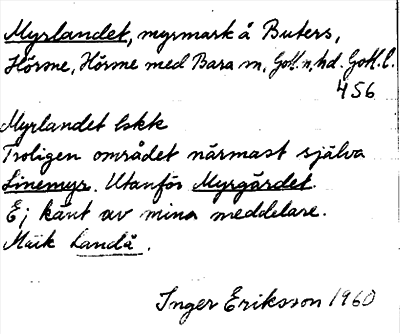 Myrlandet, myrmark å Buters,
Hörsne, Hörsne med Bara sn, Gotl. n. hd. Gotl. l.
456
Myrlandet lskk
Troligen området närmast själva
Linemyr. Utanför Myrgärdet.
Ej känt av mina meddelare.
Landå.
Inger Eriksson 1960